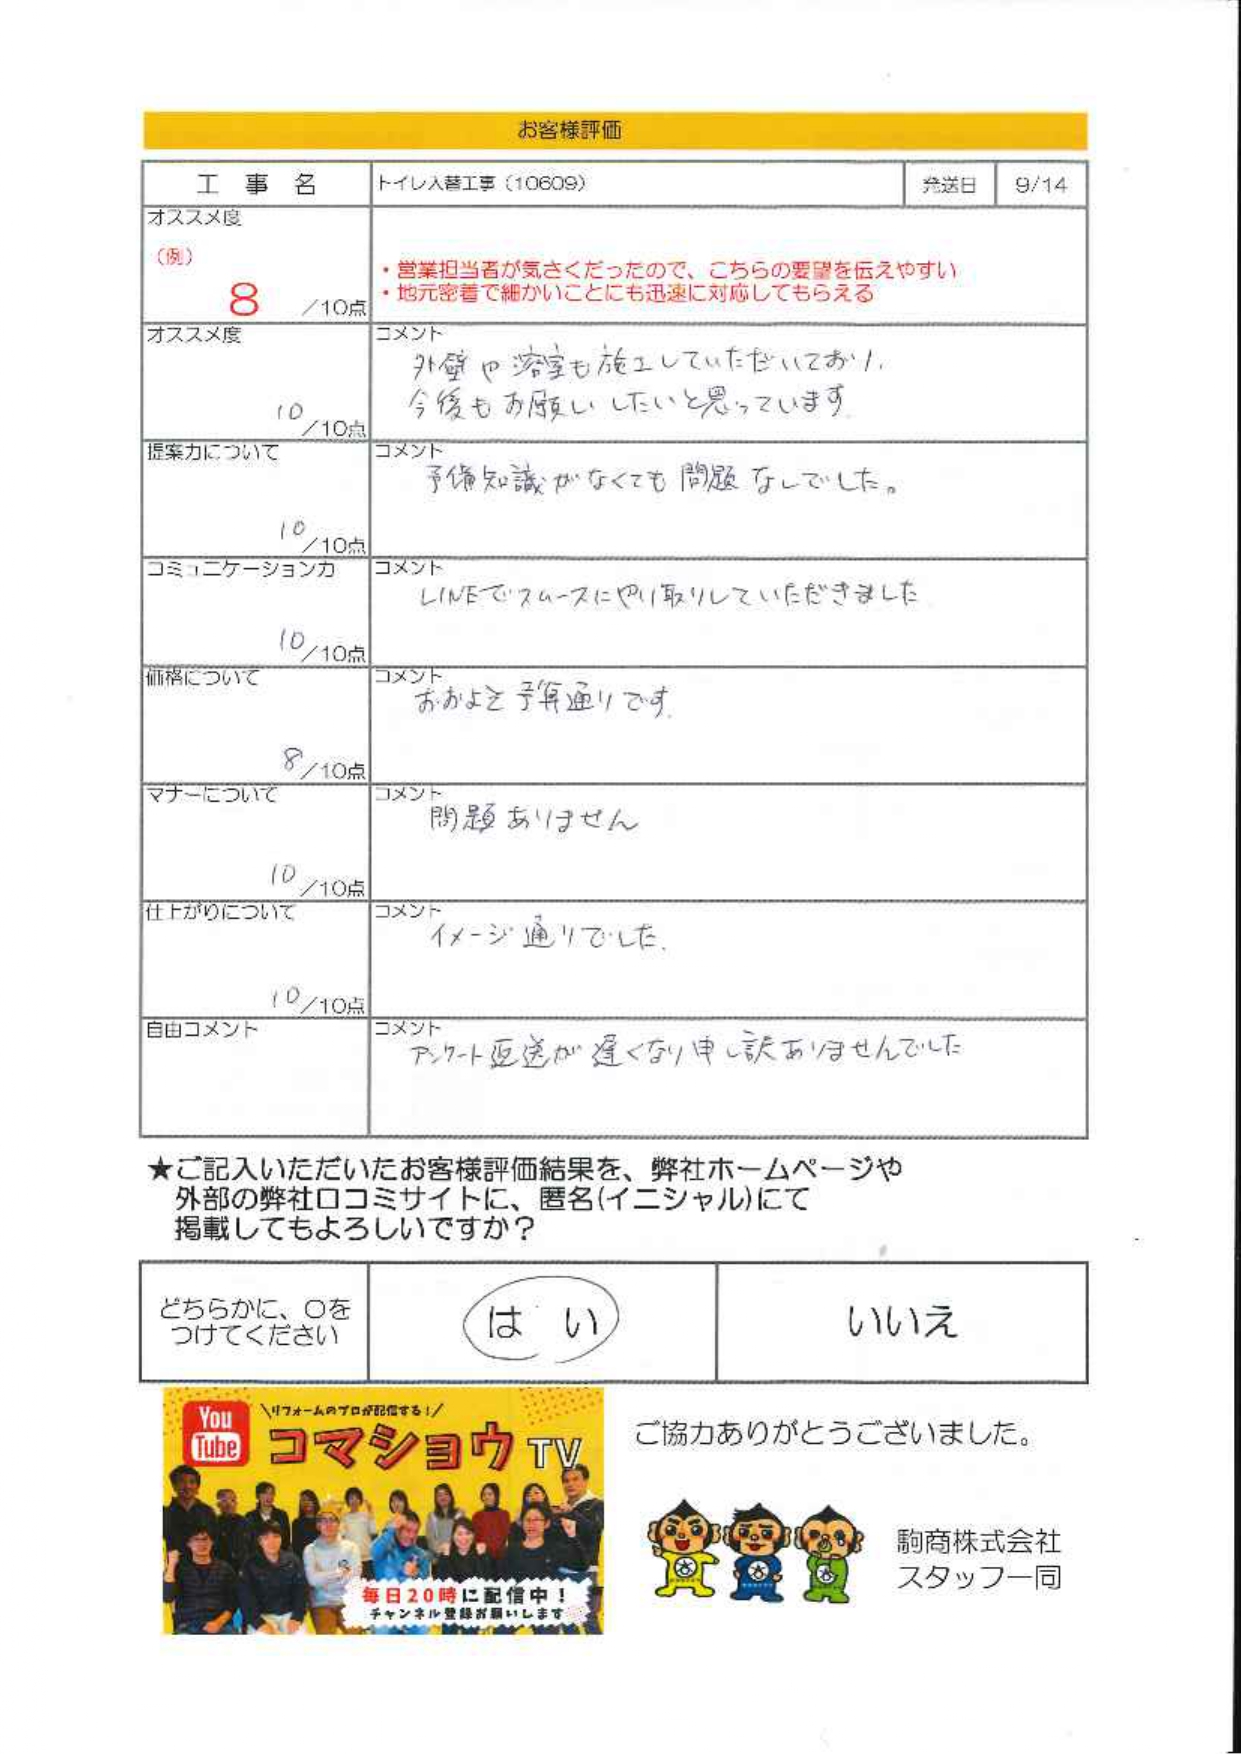 お客様評価
工事名 トイレ入替工事（10609） 発送日 9/14
オススメ度
（例）
8 ／10点
・営業担当者が気さくだったので、こちらの要望を伝えやすい
・地元密着で細かいことにも迅速に対応してもらえる
オススメ度
10／10点
コメント
外壁や浴室も施工していただいており、
今後もお願いしたいと思っています
提案力について
10／10点
コメント
予備知識がなくても問題なしでした。
コミュニケーション力
10／10点
コメント
LINEでスムースにやり取りしていただきました
価格について
8／10点
コメント
おおよそ予算通りです.
マナーについて
10／10点
コメント
問題ありません
仕上がりについて
10／10点
コメント
イメージ通りでした.
自由コメント
コメント
アンケート返送が遅くなり申し訳ありませんでした
★ご記入いただいたお客様評価結果を、弊社ホームページや
外部の弊社口コミサイトに、匿名(イニシャル)にて
掲載してもよろしいですか？
どちらかに、〇を
つけてください
はい
いいえ
You
Tube
\リフォームのプロが配信する！/
コマショウTV
毎日20時に配信中！
チャンネル登録お願いします
ご協力ありがとうございました。
駒商株式会社
スタッフ一同